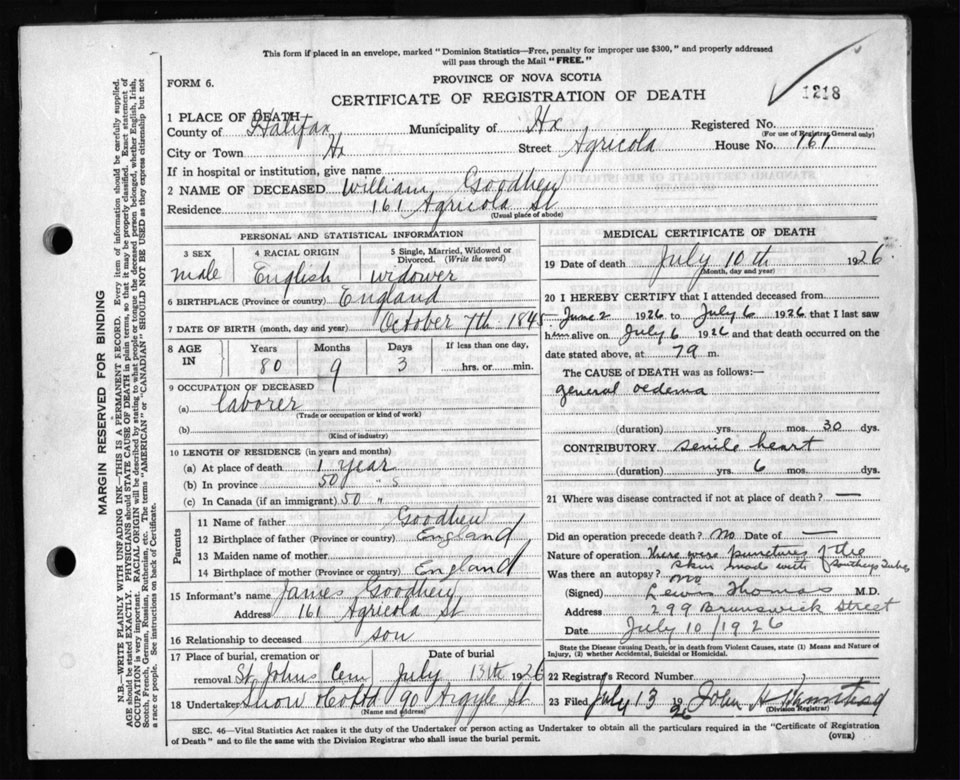 This form if placed in an envelope, marked "Dominion Statistics—Free, penalty for improper use $300," and properly addressed
will pass through the Mail "FREE."
FORM 6.
PROVINCE OF NOVA SCOTIA
CERTIFICATE OF REGISTRATION OF DEATH
1218
1 PLACE OF DEATH
County of Halifax Municipality of Hx Registered No.
(For use of Registrar General only)
City or Town Hx Street Agricola House No. 161
If in hospital or institution, give name
2 NAME OF DECEASED William Goodhew
Residence 161 Agricola St
(Usual place of abode)
PERSONAL AND STATISTICAL INFORMATION
3 SEX 4 RACIAL ORIGIN 5 Single, Married, Widowed or Divorced. (Write the word)
male English widower
6 BIRTHPLACE (Province or country) England
7 DATE OF BIRTH (month, day and year) October 7th 1845
8 AGE IN Years Months Days If less than one day,
80 9 3 hrs. or min.
9 OCCUPATION OF DECEASED
(a) laborer
(Trade or occupation or kind of work)
(b)
(Kind of industry)
10 LENGTH OF RESIDENCE (in years and months)
(a) At place of death 1 year
(b) In province 50 " s
(c) In Canada (if an immigrant) 50 "
Parents
11 Name of father Goodhew
12 Birthplace of father (Province or country) England
13 Maiden name of mother
14 Birthplace of mother (Province or country) England
15 Informant's name James Goodhew
Address 161 Agricola St
16 Relationship to deceased son
17 Place of burial, cremation or removal Date of burial
St. Johns Cem July 13th 1926
18 Undertaker Snow & Co Ltd 90 Argyle St.
(Name and address)
MEDICAL CERTIFICATE OF DEATH
19 Date of death July 10th 1926
(Month, day and year)
20 I HEREBY CERTIFY that I attended deceased from
June 2 1926 to July 6 1926 that I last saw
him alive on July 6 1926 and that death occurred on the
date stated above, at m.
The CAUSE of DEATH was as follows:—
general oedema
(duration) yrs. mos. 30 dys.
CONTRIBUTORY senile heart
(duration) yrs. 6 mos. dys.
21 Where was disease contracted if not at place of death? —
Did an operation precede death? No Date of —
Nature of operation There were punctures of the
skin made with Southeys Tubes
Was there an autopsy? No
(Signed) Lewis Thomas M.D.
Address 299 Brunswick Street
Date July 10/1926
State the Disease causing Death, or in death from Violent Causes, state (1) Means and Nature of
Injury, (2) whether Accidental, Suicidal or Homicidal.
22 Registrar's Record Number
23 Filed July 13 1926 John H
(Division Registrar)
SEC. 46—Vital Statistics Act makes it the duty of the Undertaker or person acting as Undertaker to obtain all the particulars required in the "Certificate of Registration
of Death" and to file the same with the Division Registrar who shall issue the burial permit.
(OVER)
MARGIN RESERVED FOR BINDING
N.B.—WRITE PLAINLY WITH UNFADING INK—THIS IS A PERMANENT RECORD. Every item of information should be carefully supplied.
AGE should be stated EXACTLY. PHYSICIANS should STATE CAUSE OF DEATH in plain terms, so that it may be properly classified. Exact statement of
OCCUPATION is very important. RACIAL ORIGIN will be described by stating to what people or tongue the deceased person belonged, whether English, Irish,
Scotch, French, German, Russian, Ruthenian, etc. The terms "AMERICAN" or "CANADIAN" SHOULD NOT BE USED as they express citizenship but not
a race or people. See instructions on back of Certificate.